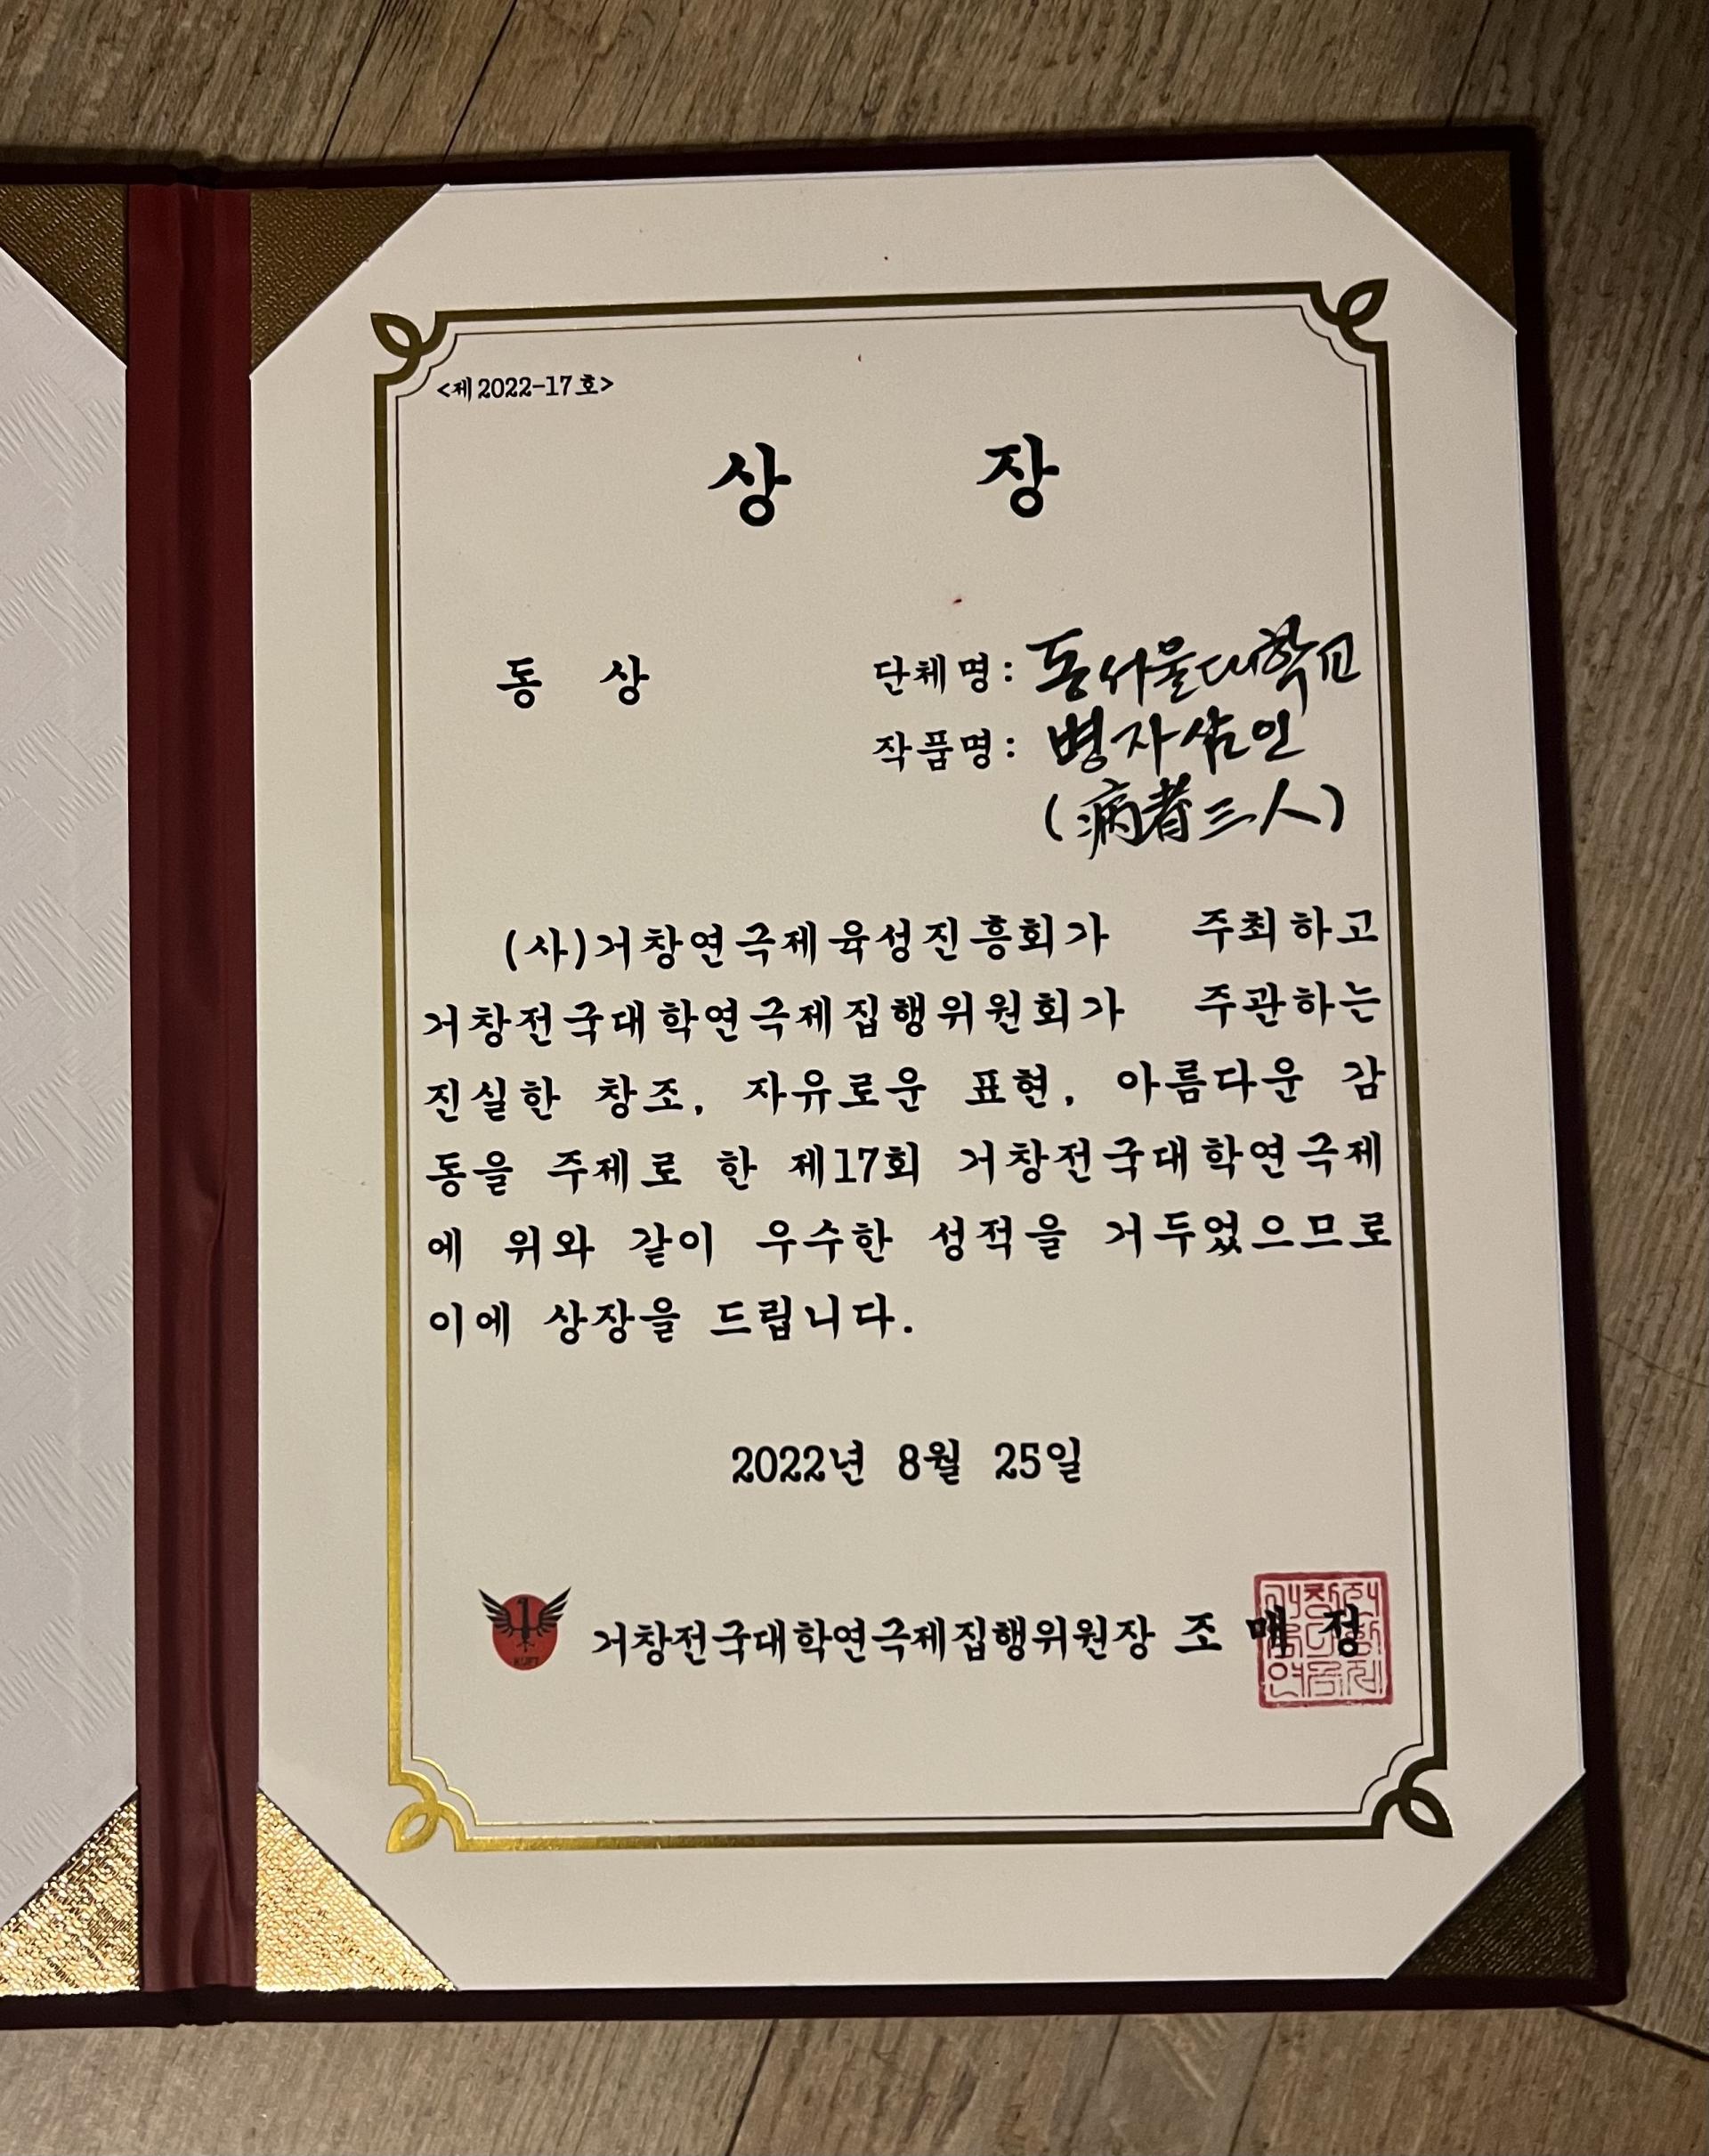 <제 2022-17호>
상 장
동 상
단체명: 동서울대학교
작품명: 병자삼인
(病者三人)
(사)거창연극제육성진흥회가 주최하고
거창전국대학연극제집행위원회가 주관하는
진실한 창조, 자유로운 표현, 아름다운 감
동을 주제로 한 제17회 거창전국대학연극제
에 위와 같이 우수한 성적을 거두었으므로
이에 상장을 드립니다.
2022년 8월 25일
거창전국대학연극제집행위원장 조 매 정